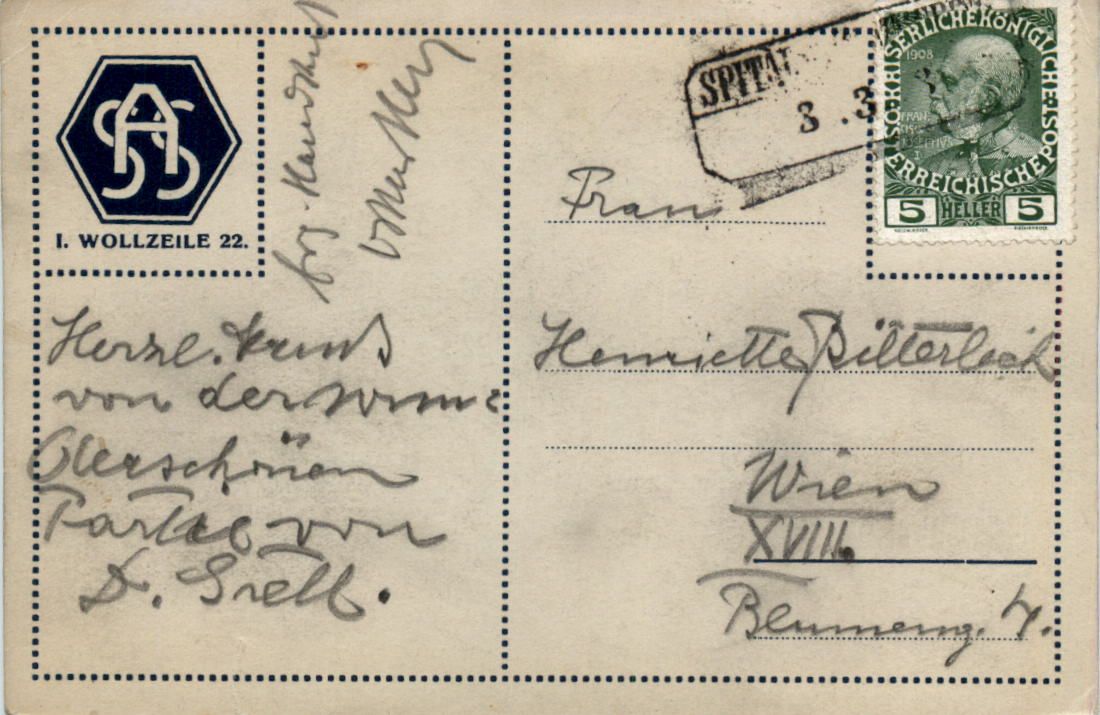 ASS
I. WOLLZEILE 22.
Herzl.
von der wun=
derschönen
Partie von
D. Grell.
SPITAL
3 . 3
KAISERLICHEKÖNIGLICHE
ÖSTERREICHISCHE POST
1908
5 HELLER 5
Frau
Henriette Bitterlich
Wien
XVIII.
Blumeng. 4.